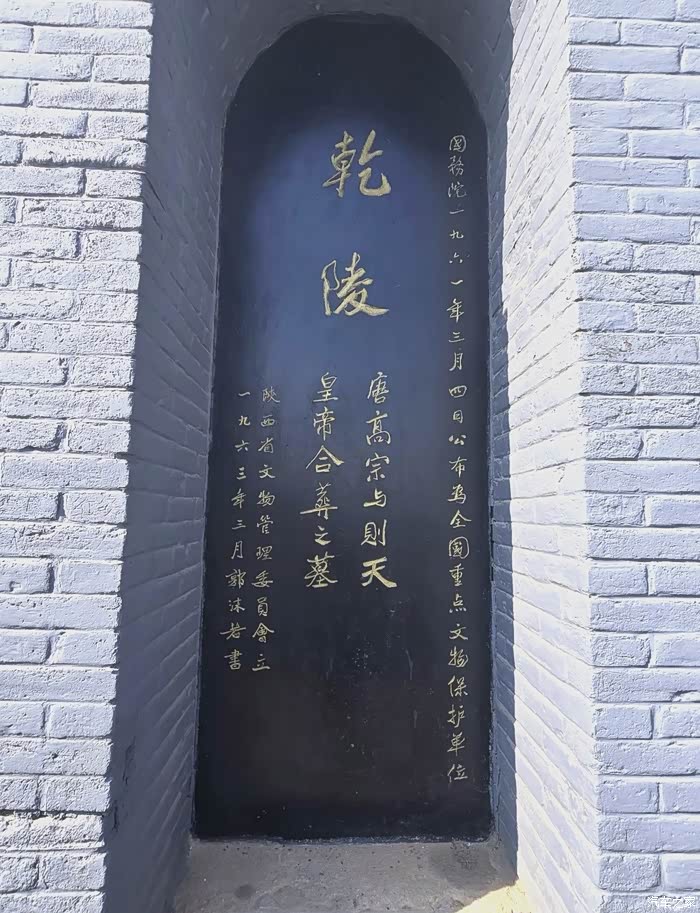 国務院一九六一年三月四日公布为全國重点文物保护单位
乾陵
唐高宗与則天
皇帝合葬之墓
陝西省文物管理委員會立
一九六三年三月郭沫若書
汽车之家